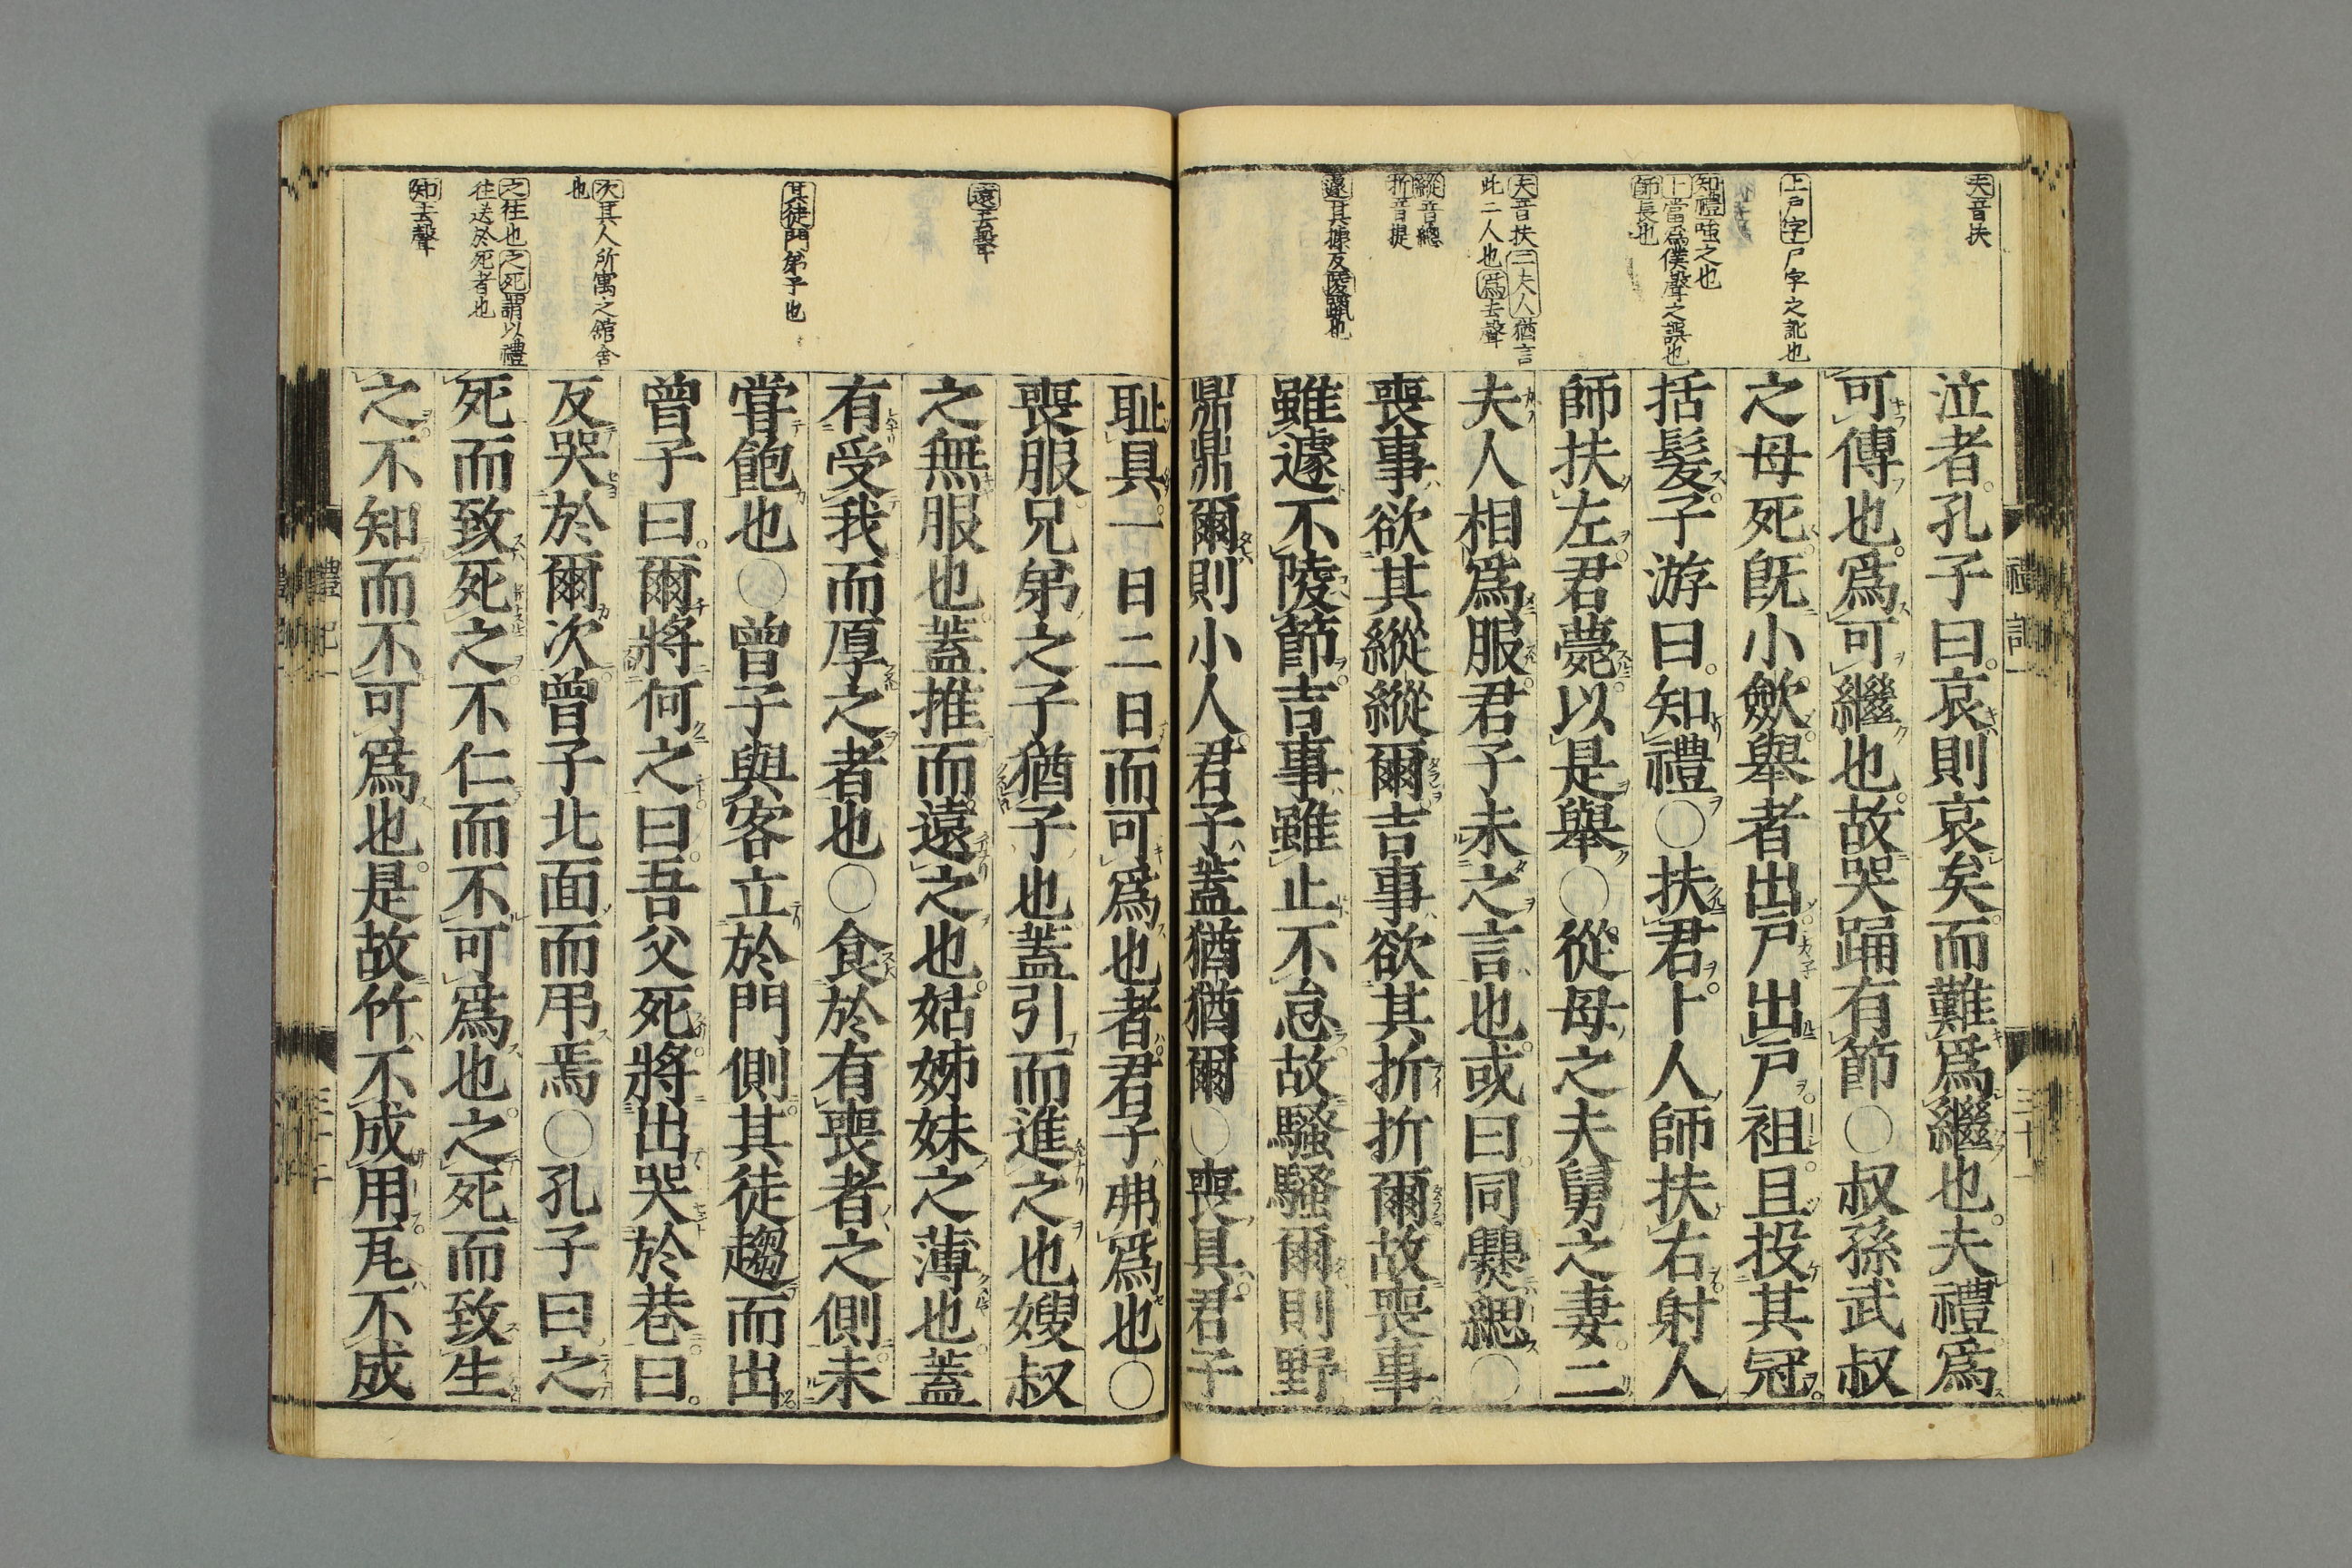 夫音扶
上戸字尸字之訛也
知禮嗤之也
卜當爲僕聲之誤也
師長也
夫音扶二夫人猶言
此二人也爲去聲
縱音總
折音提
遽其據反陵躐也
泣者孔子曰哀則哀矣而難爲繼也夫禮爲
可傳也爲可繼也故哭踊有節〇叔孫武叔
之母死既小斂舉者出戸出戸袒且投其冠
括髮子游曰知禮〇扶君卜人師扶右射人
師扶左君薨以是舉〇從母之夫舅之妻二
夫人相爲服君子未之言也或曰同爨緦〇
喪事欲其縱縱爾吉事欲其折折爾故喪事
雖遽不陵節吉事雖止不怠故騷騷爾則野
鼎鼎爾則小人君子蓋猶猶爾〇喪具君子
禮記一
三十一
遠去聲
其徒門弟子也
次其人所寓之舘舍
也
之往也之死謂以禮
往送於死者也
知去聲
耻具一日二日而可爲也者君子弗爲也〇
喪服兄弟之子猶子也蓋引而進之也嫂叔
之無服也蓋推而遠之也姑姊妹之薄也蓋
有受我而厚之者也〇食於有喪者之側未
嘗飽也〇曾子與客立於門側其徒趨而出
曾子曰爾將何之曰吾父死將出哭於巷曰
反哭於爾次曾子北面而弔焉〇孔子曰之
死而致死之不仁而不可爲也之死而致生
之不知而不可爲也是故竹不成用瓦不成
禮記一